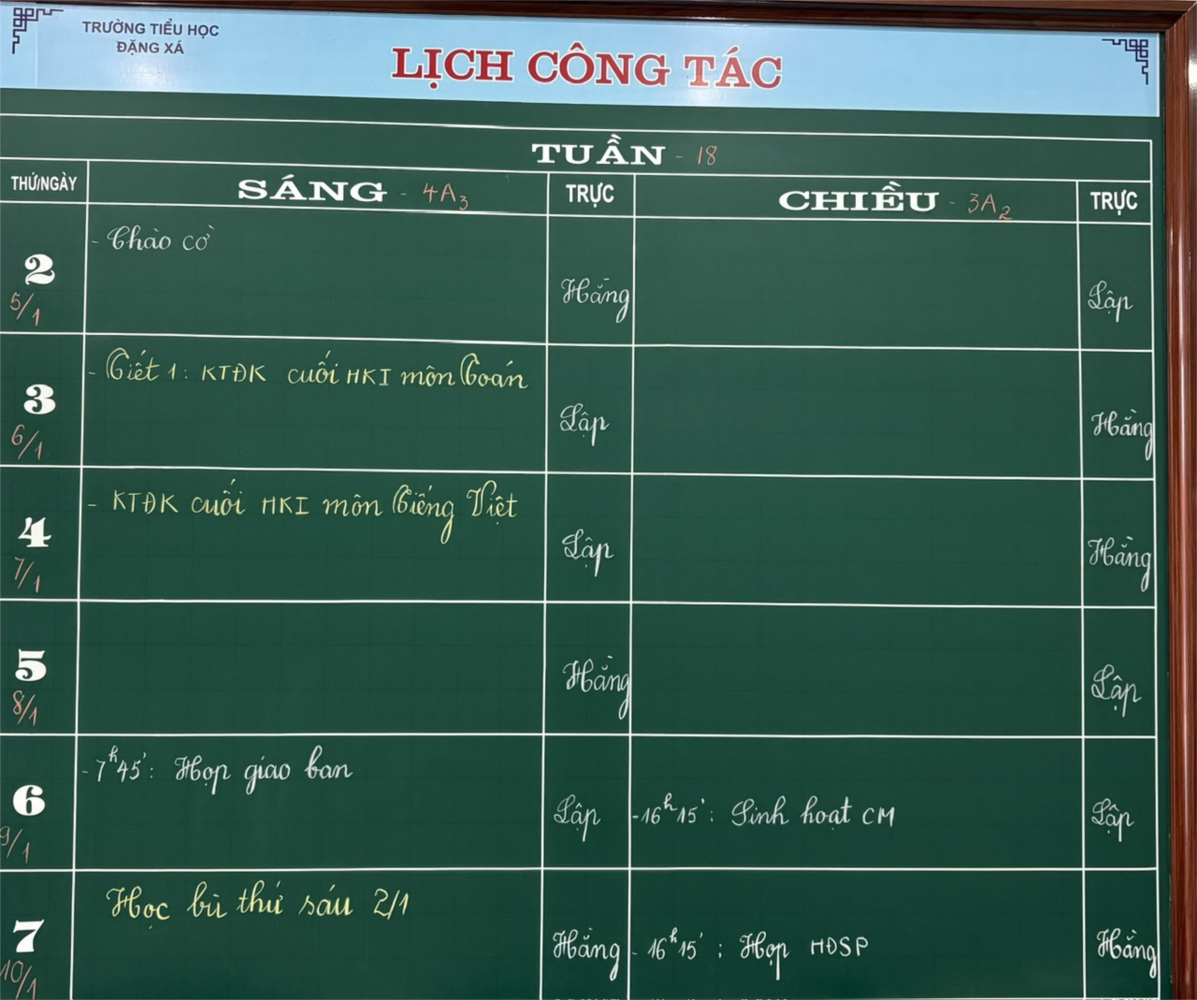 TRƯỜNG TIỂU HỌC
ĐẶNG XÁ
LỊCH CÔNG TÁC
TUẦN - 18
THỨ/NGÀY
SÁNG - 4A3
TRỰC
CHIỀU - 3A2
TRỰC
2
5/1
- Chào cờ
Hằng
Lập
3
6/1
- Tiết 1: KTĐK cuối HKI môn Toán
Lập
Hằng
4
7/1
- KTĐK cuối HKI môn Tiếng Việt
Lập
Hằng
5
8/1
Hằng
Lập
6
9/1
- 7h45': Họp giao ban
Lập
- 16h15': Sinh hoạt CM
Lập
7
10/1
Học bù thứ sáu 2/1
Hằng
- 16h15': Họp HĐSP
Hằng